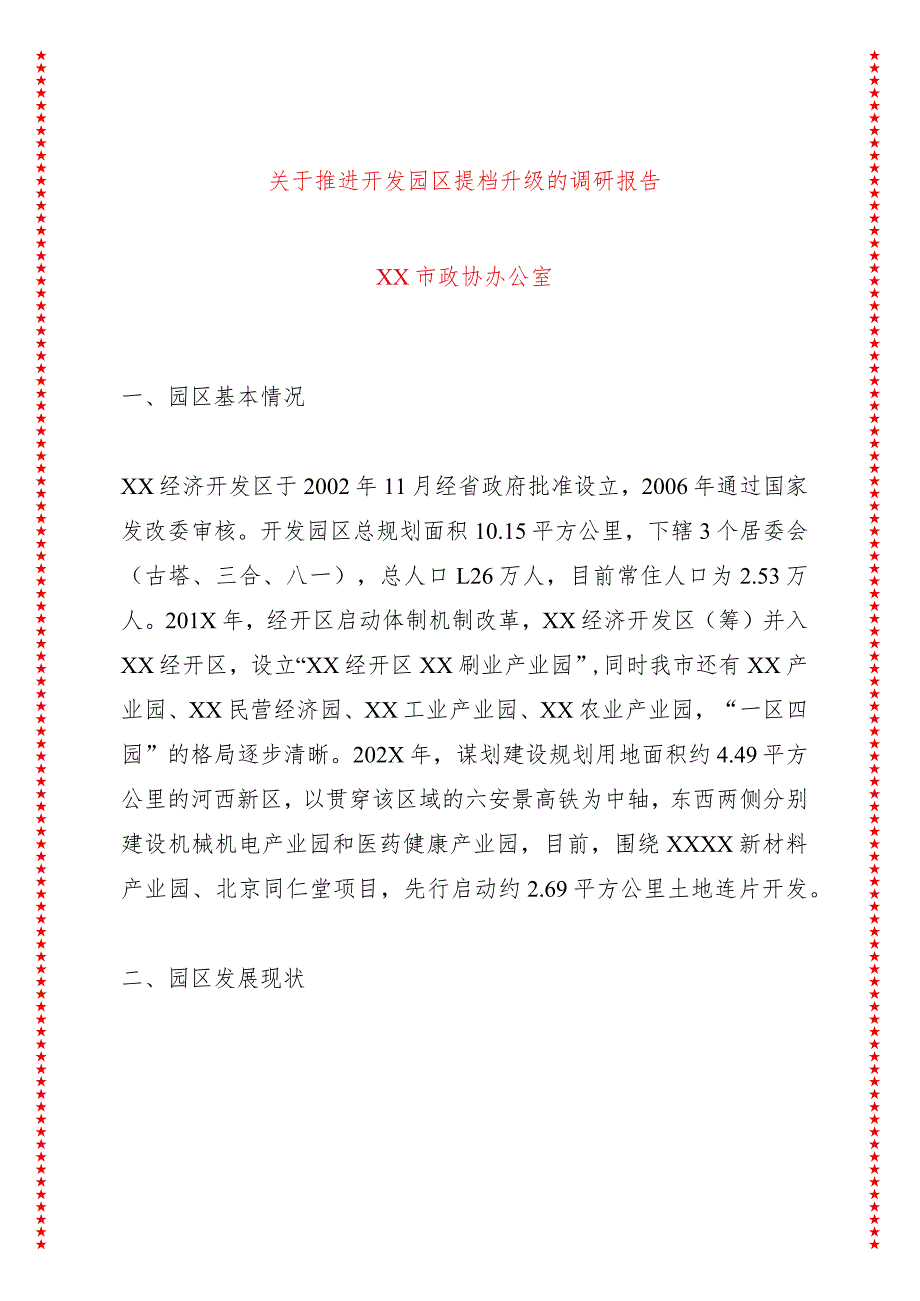 关于推进开发园区提档升级的调研报告
XX 市政协办公室
一、园区基本情况
XX 经济开发区于 2002 年 11 月经省政府批准设立，2006 年通过国家
发改委审核。开发园区总规划面积 10.15 平方公里，下辖 3 个居委会
（古塔、三合、八一），总人口 L26 万人，目前常住人口为 2.53 万
人。201X 年，经开区启动体制机制改革，XX 经济开发区（筹）并入
XX 经开区，设立“XX 经开区 XX 刷业产业园”,同时我市还有 XX 产
业园、XX 民营经济园、XX 工业产业园、XX 农业产业园，“一区四
园”的格局逐步清晰。202X 年，谋划建设规划用地面积约 4.49 平方
公里的河西新区，以贯穿该区域的六安景高铁为中轴，东西两侧分别
建设机械机电产业园和医药健康产业园，目前，围绕 XXXX 新材料
产业园、北京同仁堂项目，先行启动约 2.69 平方公里土地连片开发。
二、园区发展现状